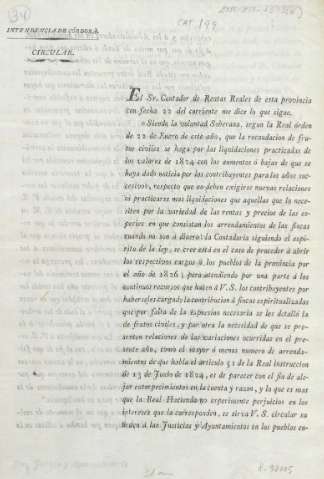 (34)
CAT. 199
INTENDENCIA DE CÓRDOBA.
CIRCULAR.
El Sr. Contador de Rentas Reales de esta provincia
con fecha 22 del corriente me dice lo que sigue.
"Siendo la voluntad Soberana, segun la Real órden
de 22 de Enero de este año, que la recaudacion de fru-
tos civiles se haga por las liquidaciones practicadas de
los valores de 1824 con los aumentos ó bajas de que se
haya dado noticia por los contribuyentes para los años suc-
cesivos, respecto que no deben exigirse nuevas relaciones
ni practicarse mas liquidaciones que aquellas que lo nece-
siten por la variedad de las rentas y precios de las es-
pecies en que consistan los arrendamientos de las fincas
cuando no son á dinero: la Contaduría siguiendo el espí-
ritu de la ley, se cree está en el caso de proceder á abrir
los respectivos cargos á los pueblos de la provincia por
el año de 1826; pero atendiendo por una parte á los
continuos recursos que hacen á V. S. los contribuyentes por
haberseles cargado la contribucion á fincas espiritualizadas
que por falta de la espresion necesaria se les detalló la
de frutos civiles, y por otra la necesidad de que se pre-
senten relaciones de las variaciones ocurridas en el pre-
sente año, como el mayor ó menor numero de arrenda-
mientos de que habla el artículo 51 de la Real instruccion
de 13 de Junio de 1824, es de parecer con el fin de ale-
jar entorpecimientos en la cuenta y razon, y lo que es mas
que la Real Hacienda no experimente perjuicios en los
intereses que la corresponden, se sirva V. S. circular su
órden á las Justicias y Ayuntamientos en los pueblos en-